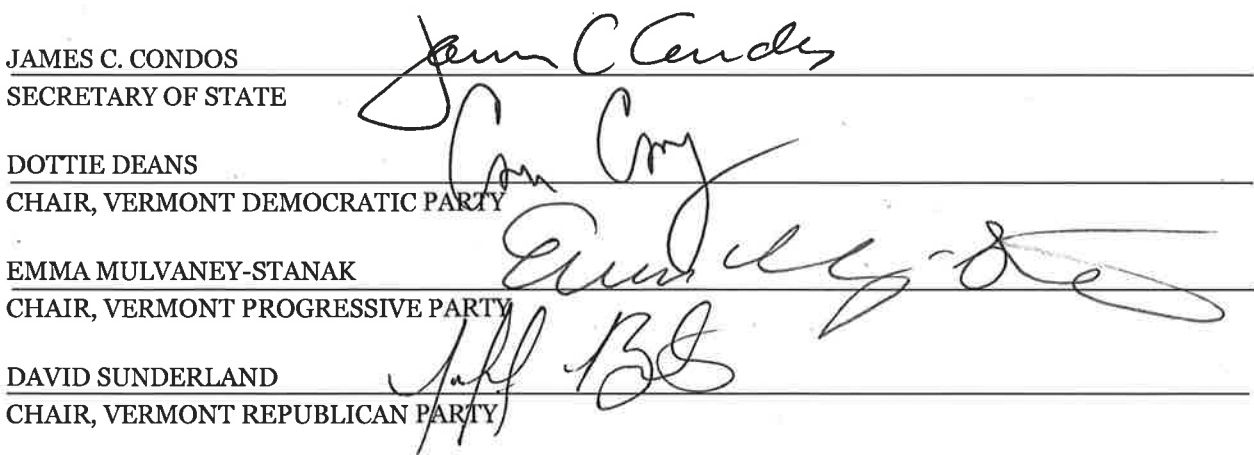 JAMES C. CONDOS James C Condos
SECRETARY OF STATE
DOTTIE DEANS
CHAIR, VERMONT DEMOCRATIC PARTY
EMMA MULVANEY-STANAK Emma
CHAIR, VERMONT PROGRESSIVE PARTY
DAVID SUNDERLAND
CHAIR, VERMONT REPUBLICAN PARTY